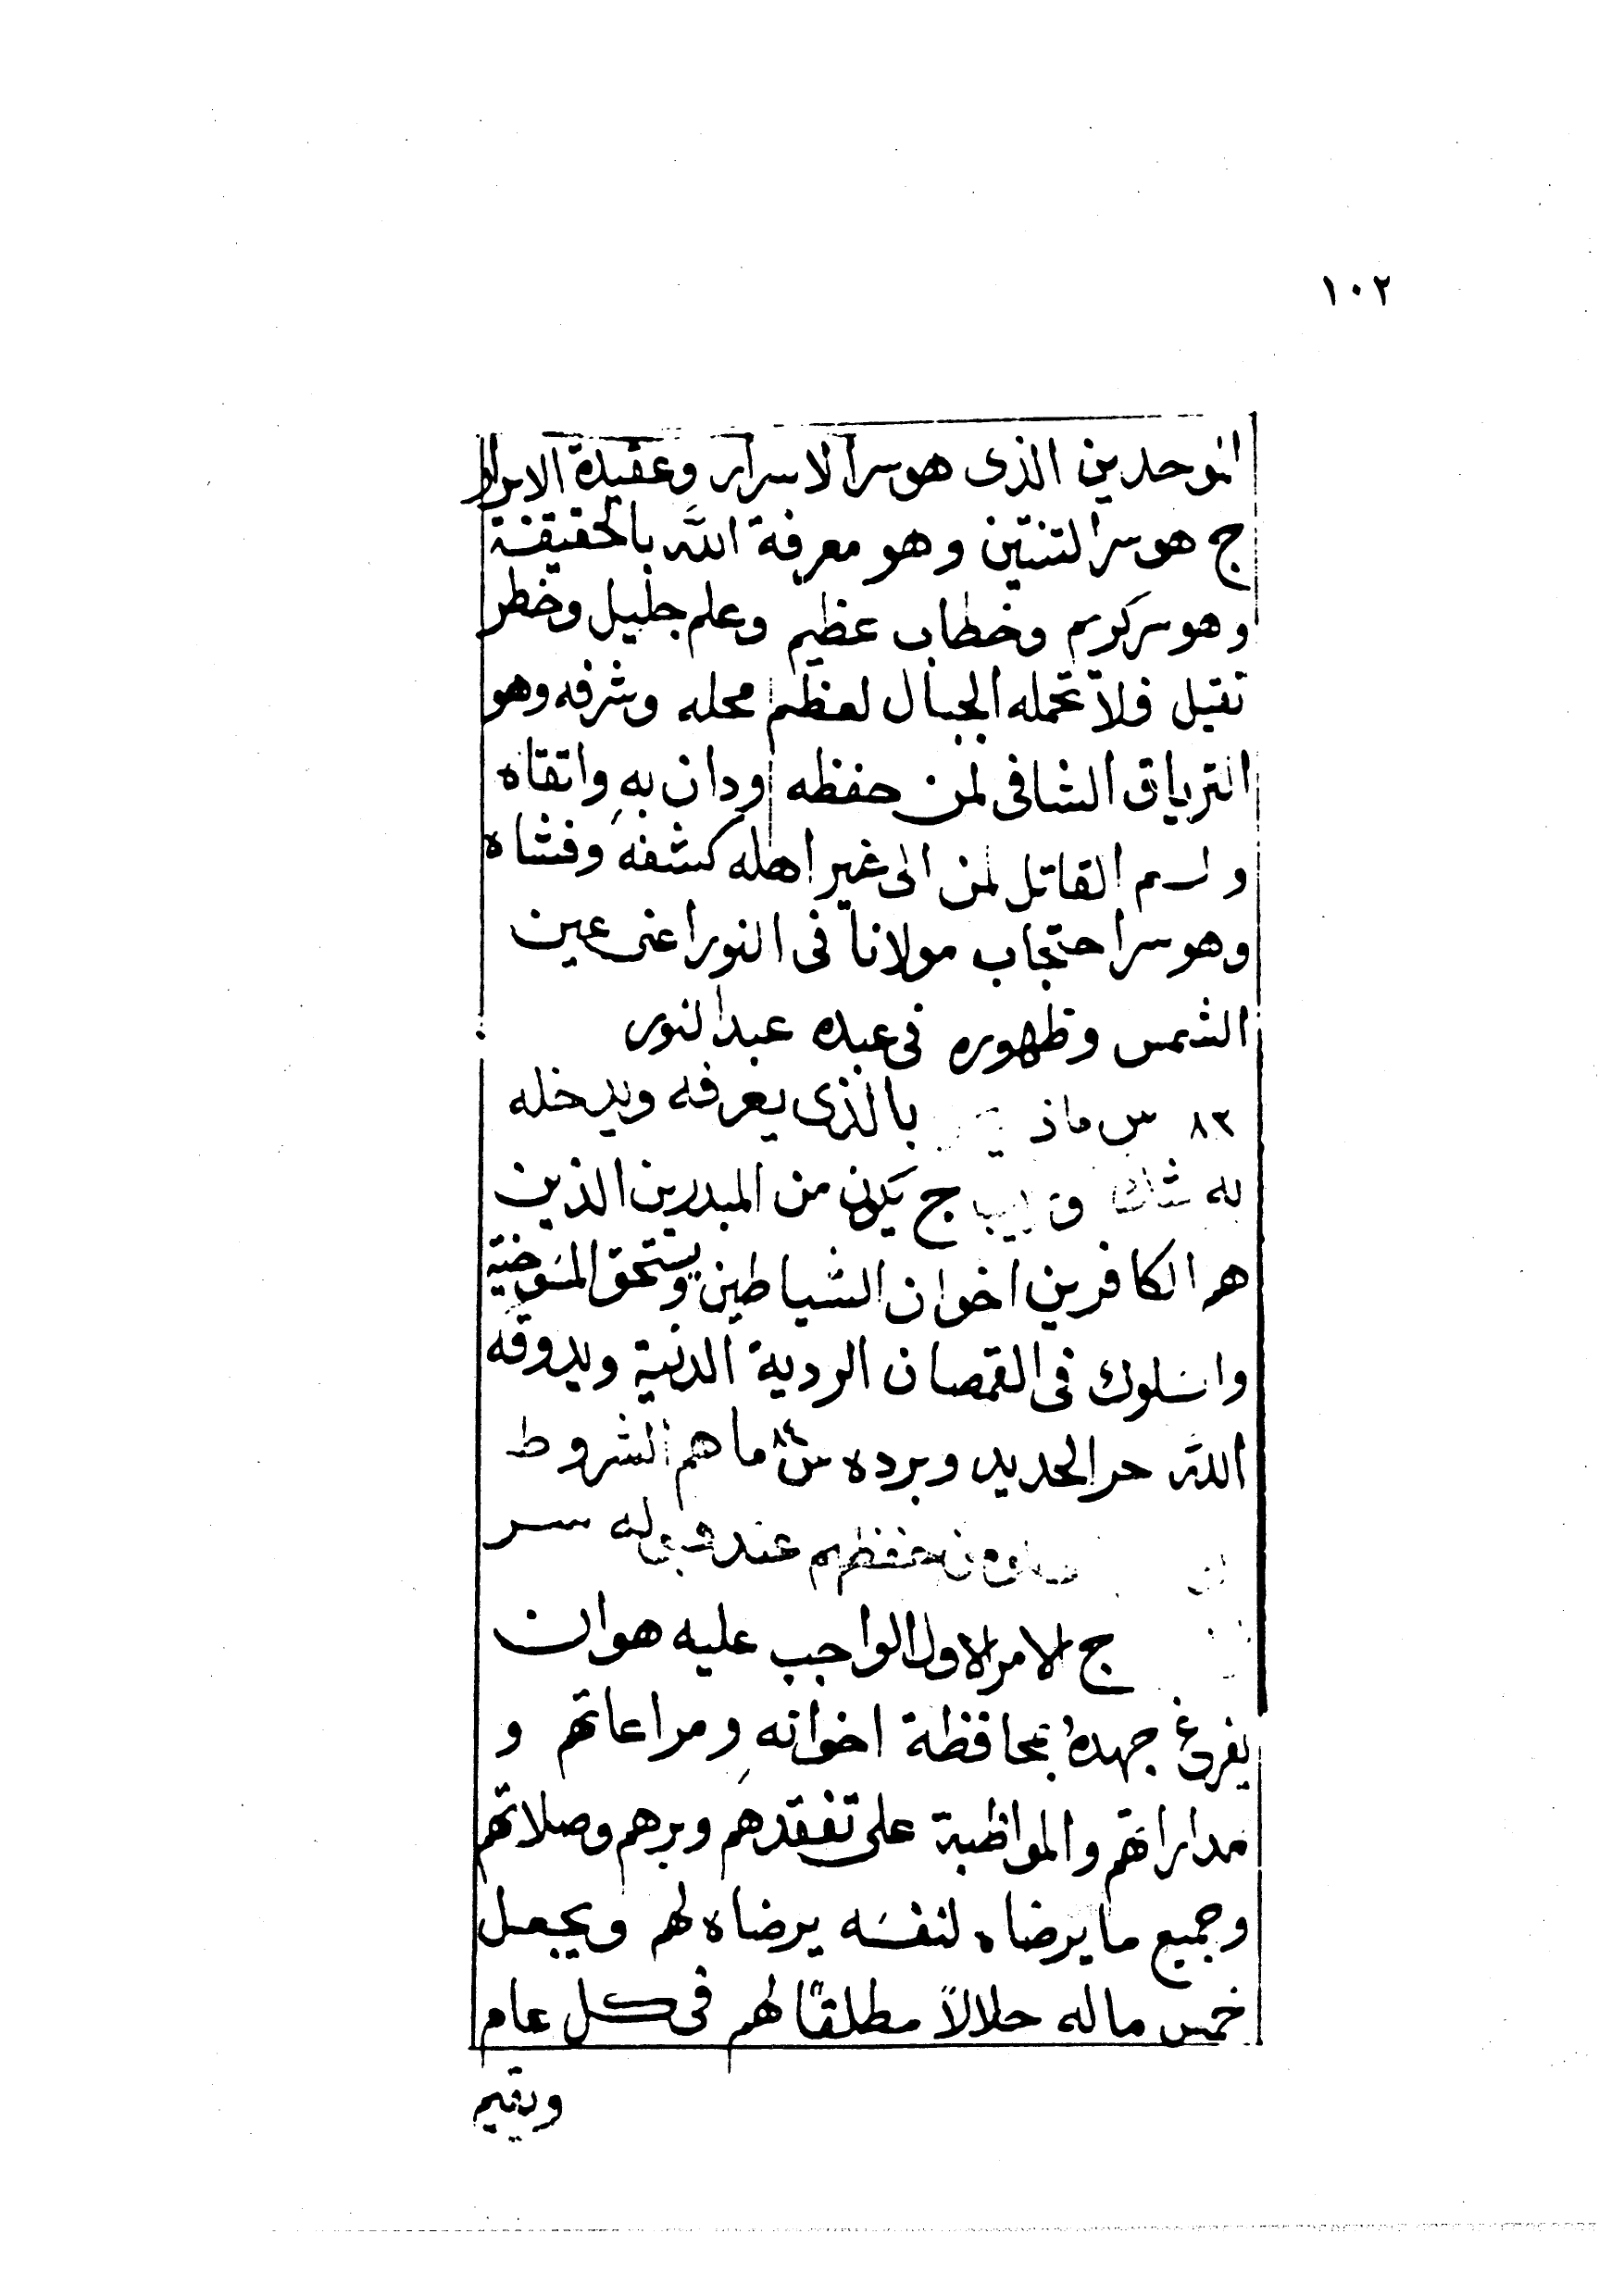 ١٠٢
الموحدين الذى هو سر الاسرار وعقيدة الابرار
ج هو سر التنتين وهو معرفة الله بالحقيقة
وهو سر كريم وخطاب عظيم وعلم جليل وخطر
ثقيل فلا تحمله الجبال لعظم محله وشرفه وهو
الترياق الشافى لمن حفظه ودان به واتقاه
والسم القاتل لمن الى غير اهله كشفه وفشاه
وهو سر احتجاب مولانا فى النور اعنى عين
الشمس وظهوره فى عبده عبد النور
٨٣ س ماذ بالذى يعرفه ويدخله
به شك ج يكون من المبدرين الذين
هم الكافرين اخوان الشياطين ويستحق المسوخية
والسلوك فى القمصان الردية الدنية ويدوقه
الله حر الحديد وبرده س ٨٤ ما هم الشروط
حفظهم عند قبوله سر
ج الامر الاول الواجب عليه هو ان
يفرغ جهده بمحافظة اخوانه ومراعاتهم و
مداراتهم والمواظبة على تفقدهم وبرهم وصلاتهم
وجميع ما يرضاه لنفسه يرضاه لهم ويجعل
خمس ماله حلالاً مطلقاً لهم فى كل عام
ويقيم